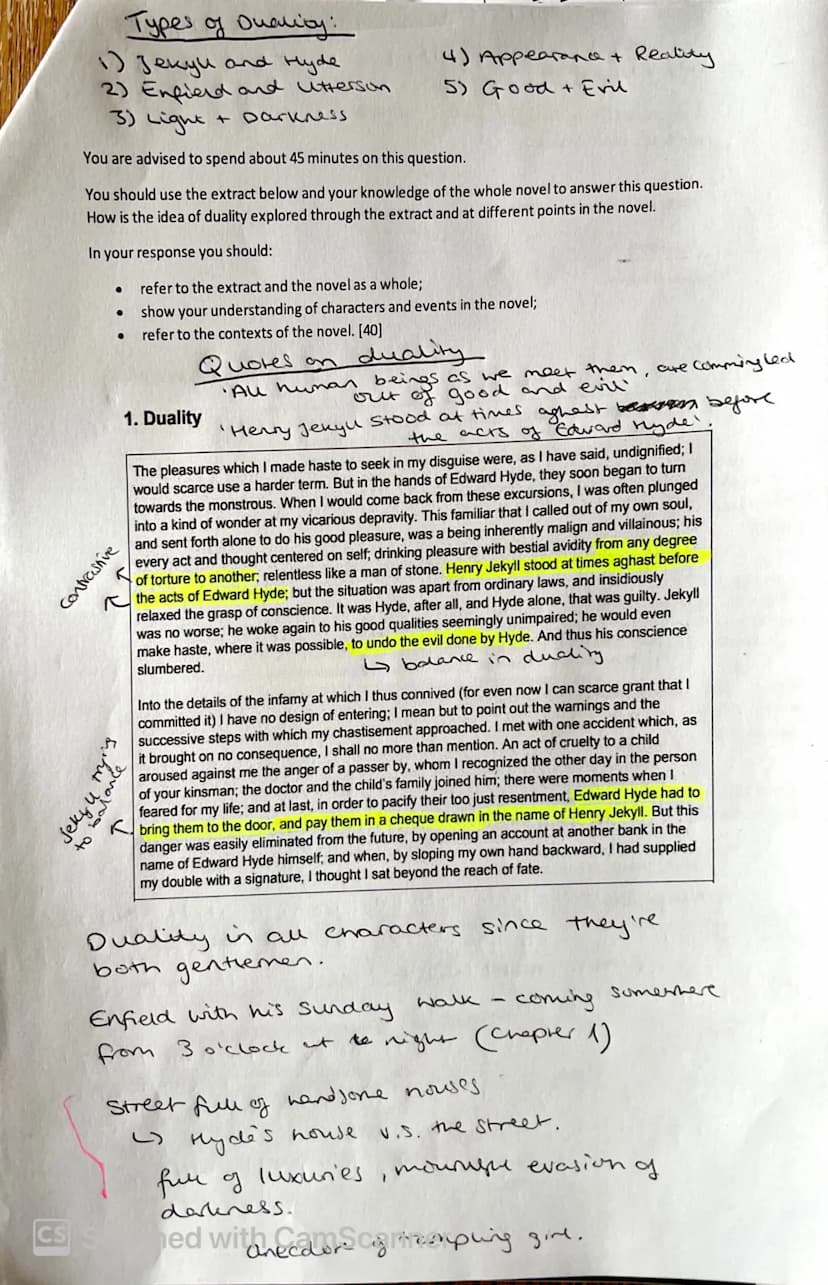 Types of Duality:
1) Jekyll and Hyde
4) Appearance + Reality
2) Enfield and Utterson
5) Good + Evil
3) Light + Darkness
You are advised to spend about 45 minutes on this question.
You should use the extract below and your knowledge of the whole novel to answer this question.
How is the idea of duality explored through the extract and at different points in the novel.
In your response you should:
• refer to the extract and the novel as a whole;
• show your understanding of characters and events in the novel;
• refer to the contexts of the novel. [40]
Quotes on duality
'All human beings as we meet them, are commingled
out of good and evil'
1. Duality
'Henry Jekyll stood at times aghast before
the acts of Edward Hyde'.
The pleasures which I made haste to seek in my disguise were, as I have said, undignified; I
would scarce use a harder term. But in the hands of Edward Hyde, they soon began to turn
towards the monstrous. When I would come back from these excursions, I was often plunged
into a kind of wonder at my vicarious depravity. This familiar that I called out of my own soul,
and sent forth alone to do his good pleasure, was a being inherently malign and villainous; his
every act and thought centered on self; drinking pleasure with bestial avidity from any degree
of torture to another; relentless like a man of stone. Henry Jekyll stood at times aghast before
the acts of Edward Hyde; but the situation was apart from ordinary laws, and insidiously
relaxed the grasp of conscience. It was Hyde, after all, and Hyde alone, that was guilty. Jekyll
was no worse; he woke again to his good qualities seemingly unimpaired; he would even
make haste, where it was possible, to undo the evil done by Hyde. And thus his conscience
slumbered.
Contrastive
↳ balance in duality
Into the details of the infamy at which I thus connived (for even now I can scarce grant that I
committed it) I have no design of entering; I mean but to point out the warnings and the
successive steps with which my chastisement approached. I met with one accident which, as
it brought on no consequence, I shall no more than mention. An act of cruelty to a child
aroused against me the anger of a passer by, whom I recognized the other day in the person
of your kinsman; the doctor and the child's family joined him; there were moments when I
feared for my life; and at last, in order to pacify their too just resentment, Edward Hyde had to
bring them to the door, and pay them in a cheque drawn in the name of Henry Jekyll. But this
danger was easily eliminated from the future, by opening an account at another bank in the
name of Edward Hyde himself; and when, by sloping my own hand backward, I had supplied
my double with a signature, I thought I sat beyond the reach of fate.
Jekyll trying
to balance
Duality in all characters since they're
both gentlemen.
Enfield with his Sunday walk - coming somewhere
from 3 o'clock at night (Chapter 1)
Street full of handsome houses
↳ Hyde's house v.s. the street.
full of luxuries, evasion of
darkness.
CS Scanned with CamScanner
Anecdote of trampling girl.